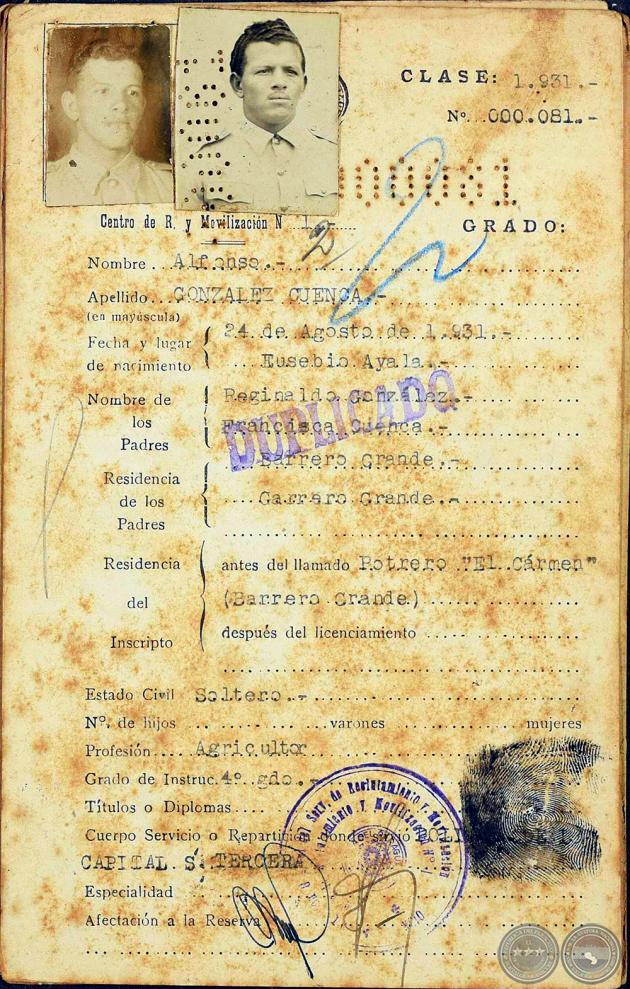 CLASE: 1.931.-
Nº. 000.081.-
000081
Centro de R. y Movilización N 1.-
2
GRADO:
Nombre Alfonso.-
Apellido GONZALEZ CUENCA.-
(en mayúscula)
Fecha y lugar de nacimiento
24 de Agosto de 1.931.-
Eusebio Ayala.-
Nombre de los Padres
Reginaldo González.-
Francisca Cuenca.-
DUPLICADO
Residencia de los Padres
Barrero Grande.-
Garrero Grande.-
Residencia del Inscripto
antes del llamado Potrero "El Cármen"
(Barrero Grande)
después del licenciamiento
Estado Civil Soltero.-
Nº. de hijos varones mujeres
Profesión Agricultor
Grado de Instruc. 4º gdo.-
Títulos o Diplomas
Cuerpo Servicio o Repartición donde sirvió
CAPITAL S. TERCERA
Especialidad
Afectación a la Reserva
Serv. de Reclutamiento y Movilización